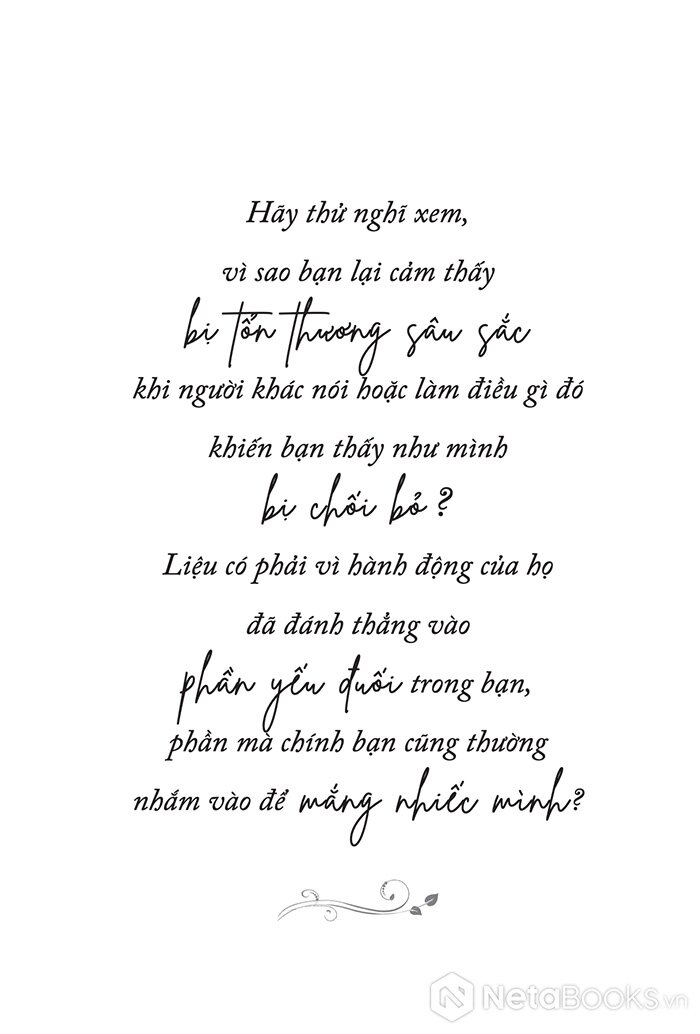 Hãy thử nghĩ xem,
vì sao bạn lại cảm thấy
bị tổn thương sâu sắc
khi người khác nói hoặc làm điều gì đó
khiến bạn thấy như mình
bị chối bỏ?
Liệu có phải vì hành động của họ
đã đánh thẳng vào
phần yếu đuối trong bạn,
phần mà chính bạn cũng thường
nhắm vào để mắng nhiếc mình?
NetaBooks.vn